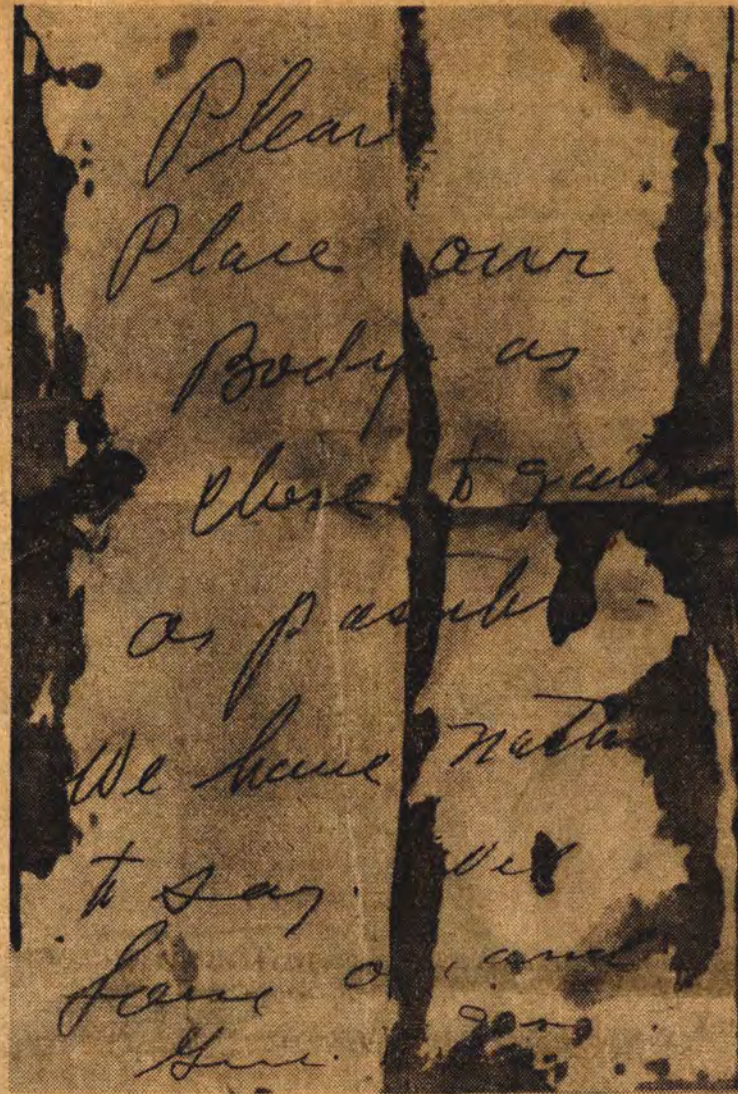 Pleas
Place our
Body as
close to gate
as possible
We have noth
to say. We
love o, and